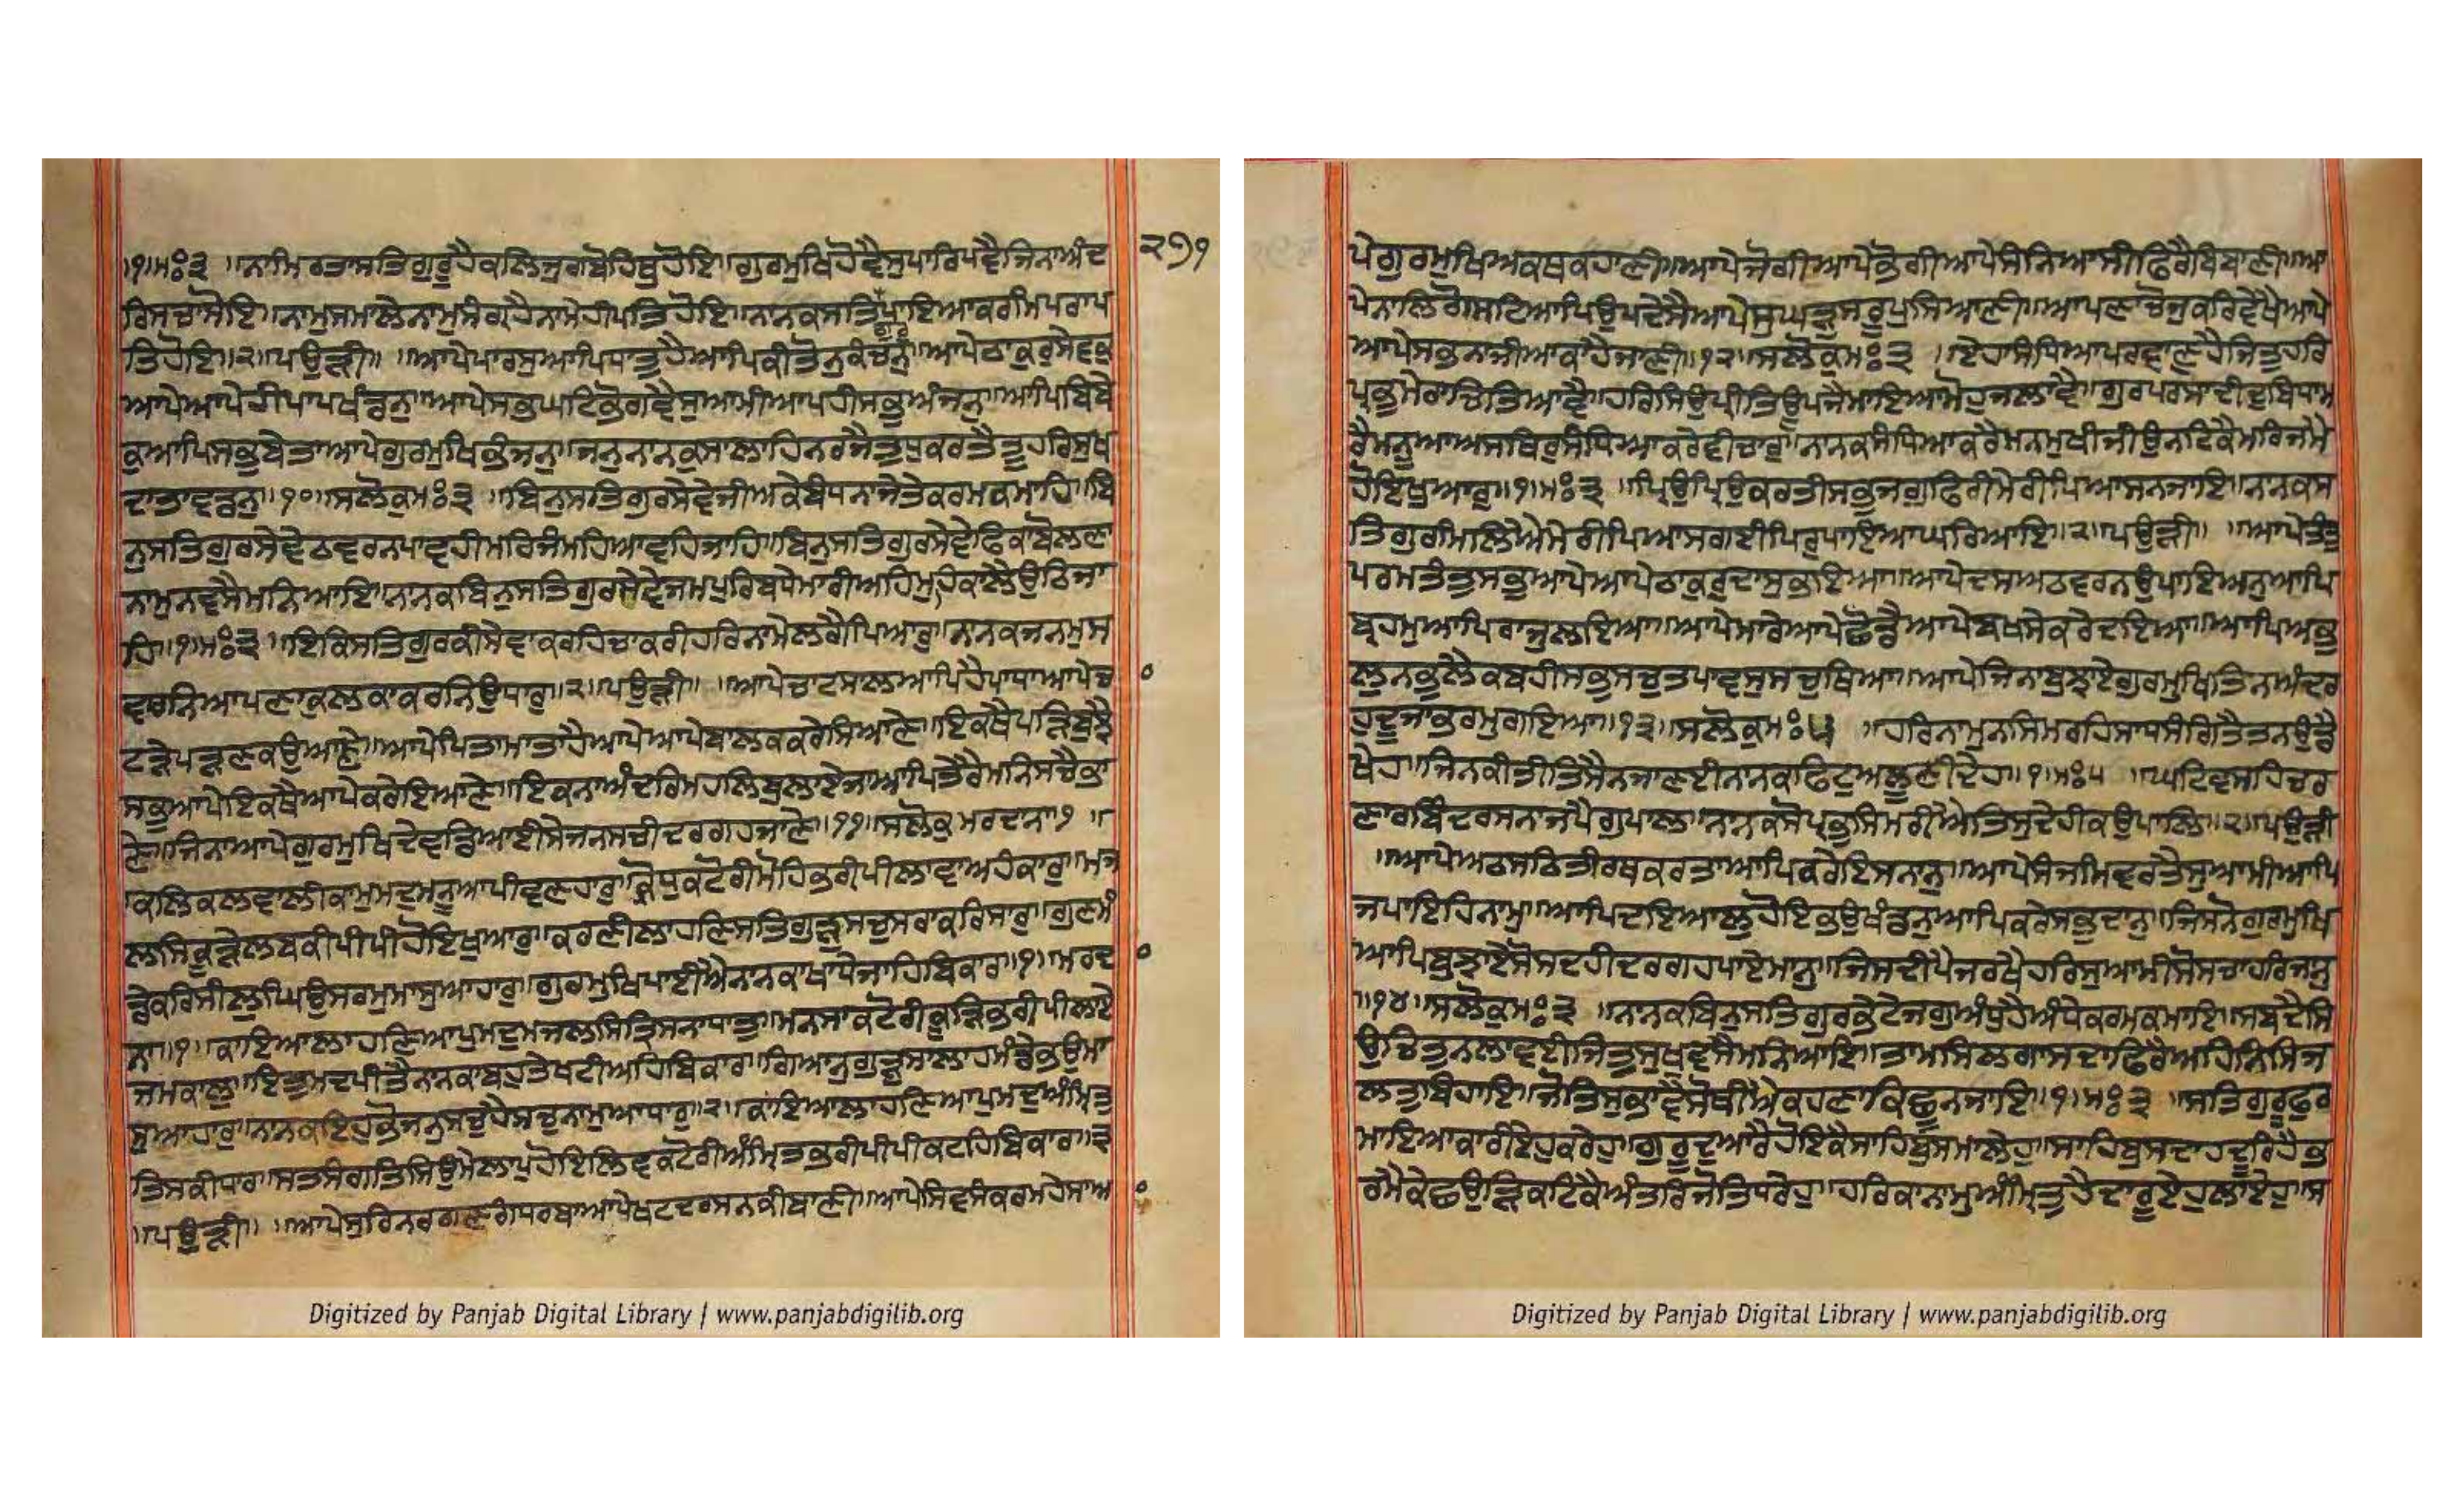 ॥੧॥ਮਃ੩ ॥ਨਾਮਿਰਤਾਸਤਿਗੁਰੂਹੈਕਲਿਜੁਗਬੋਹਿਥੁਹੋਇ॥ਗੁਰਮੁਖਿਹੋਵੈਸੁਪਾਰਿਪਵੈਜਿਨਾਅੰਦ
ਰਿਸਚਾਸੋਇ॥ਨਾਮੁਸਮਾਲੇਨਾਮੁਸੰਗ੍ਰਹੈਨਾਮੇਹੀਪਤਿਹੋਇ॥ਨਾਨਕਸਤਿਪਾਇਆਕਰਮਿਪਰਾਪ
ਗੁਰੁ
ਤਿਹੋਇ॥੨॥ਪਉੜੀ॥ ॥ਆਪੇਪਾਰਸੁਆਪਿਧਾਤੁਹੈਆਪਿਕੀਤੋਨੁਕੰਚਨੁ॥ਆਪੇਠਾਕੁਰੁਸੇਵਕੁ
ਆਪੇਆਪੇਹੀਪਾਪਖੰਡਨੁ॥ਆਪੇਸਭੁਘਟਿਭੋਗਵੈਸੁਆਮੀਆਪਹੀਸਭੁਅੰਜਨੁ॥ਆਪਿਬਿਬੇ
ਕੁਆਪਿਸਭੁਬੇਤਾਆਪੇਗੁਰਮੁਖਿਭੰਜਨੁ॥ਜਨੁਨਾਨਕੁਸਾਲਾਹਿਨਰਜੈਤੁਧੁਕਰਤੇਤੂਹਰਿਸੁਖ
ਦਾਤਾਵਡਨੁ॥੧੦॥ਸਲੋਕੁਮਃ੩ ॥ਬਿਨੁਸਤਿਗੁਰਸੇਵੇਜੀਅਕੇਬੰਧਨਾਜੇਤੇਕਰਮਕਮਾਹਿ॥ਬਿ
ਨੁਸਤਿਗੁਰਸੇਵੇਠਵਰਨਪਾਵਹੀਮਰਿਜੰਮਹਿਆਵਹਿਜਾਹਿ॥ਬਿਨੁਸਤਿਗੁਰਸੇਵੇਫਿਕਾਬੋਲਣਾ
ਨਾਮੁਨਵਸੈਮਨਿਆਇ॥ਨਾਨਕਬਿਨੁਸਤਿਗੁਰਸੇਵੇਜਮਪੁਰਿਬਧੇਮਾਰੀਅਹਿਮੁਹਿਕਾਲੈਉਠਿਜਾ
ਹਿ॥੧॥ਮਃ੩ ॥ਇਕਿਸਤਿਗੁਰਕੀਸੇਵਾਕਰਹਿਚਾਕਰੀਹਰਿਨਾਮੇਲਗੈਪਿਆਰੁ॥ਨਾਨਕਜਨਮੁਸ
ਵਾਰਨਿਆਪਣਾਕੁਲਕਾਕਰਨਿਉਧਾਰੁ॥੨॥ਪਉੜੀ॥ ॥ਆਪੇਚਾਟਸਾਲਆਪਿਹੈਪਾਧਾਆਪੇਚ
ਟੜੇਪੜਣਕਉਆਣੇ॥ਆਪੇਪਿਤਾਮਾਤਾਹੈਆਪੇਆਪੇਬਾਲਕਕਰੇਸਿਆਣੇ॥ਇਕਥੈਪੜਿਬੁਝੈ
ਸਭੁਆਪੇਇਕਥੈਆਪੇਕਰੇਇਆਣੇ॥ਇਕਨਾਅੰਦਰਿਮਹਲਿਬੁਲਾਏਜਾਆਪਿਤੇਰੈਮਨਿਸਚੇਭਾ
ਣੇ॥ਜਿਨਾਆਪੇਗੁਰਮੁਖਿਦੇਵਡਿਆਈਸੇਜਨਸਚੀਦਰਗਹਜਾਣੇ॥੧੧॥ਸਲੋਕੁਮਰਦਾਨਾ੧ ॥
ਕਲਿਕਲਵਾਲੀਕਾਮੁਮਦੁਮਨੂਆਪੀਵਣਹਾਰੁ॥ਕ੍ਰੋਧੁਕਟੋਰੀਮੋਹਿਭਰੀਪੀਲਾਵਾਅਹੰਕਾਰੁ॥ਮਜ
ਲਸਿਕੂੜੇਲਬਕੀਪੀਪੀਹੋਇਖੁਆਰੁ॥ਕਰਣੀਲਾਹਣਿਸਤਿਗੁੜੁਸਚੁਸਰਾਕਰਿਸਾਰੁ॥ਗੁਣਮੰ
ਡੇਕਰਿਸੀਲੁਘਿਉਸਰਮੁਮਾਸੁਆਹਾਰੁ॥ਗੁਰਮੁਖਿਪਾਈਐਨਾਨਕਾਖਾਧੈਜਾਹਿਬਿਕਾਰ॥੧॥ਮਰਦ
ਨਾ॥੧॥ਕਾਇਆਲਾਹਣਿਆਪੁਮਦੁਮਜਲਸਿਤ੍ਰਿਸਨਾਧਾਤੁ॥ਮਨਸਾਕਟੋਰੀਕੂੜਿਭਰੀਪੀਲਾਏ
ਜਮਕਾਲੁ॥ਇਤੁਮਦਪੀਤੈਨਾਨਕਾਬਹੁਤੇਖਟੀਅਹਿਬਿਕਾਰ॥ਗਿਆਨੁਗੁੜੁਸਾਲਾਹਮੰਡੇਭਉਮਾ
ਸੁਆਹਾਰੁ॥ਨਾਨਕਇਹੁਭੋਜਨੁਸਚੁਹੈਸਚੁਨਾਮੁਆਧਾਰੁ॥੨॥ਕਾਂਇਆਲਾਹਣਿਆਪੁਮਦੁਅੰਮ੍ਰਿਤੁ
ਤਿਸਕੀਧਾਰ॥ਸਤਸੰਗਤਿਸਿਉਮੇਲਾਪੁਹੋਇਲਿਵਕਟੋਰੀਅੰਮ੍ਰਿਤਭਰੀਪੀਪੀਕਟਹਿਬਿਕਾਰ॥੩
॥ਪਉੜੀ॥ ॥ਆਪੇਸੁਰਿਨਰਗਣਗੰਧਰਬਾਆਪੇਖਟਦਰਸਨਕੀਬਾਣੀ॥ਆਪੇਸਿਵਸੰਕਰਮਹੇਸਾਆ
੨੭੧
ਪੇਗੁਰਮੁਖਿਅਕਥਕਹਾਣੀ॥ਆਪੇਜੋਗੀਆਪੇਭੋਗੀਆਪੇਸੰਨਿਆਸੀਫਿਰੈਬਿਬਾਣੀ॥ਆ
ਪੇਨਾਲਿਗੋਸਟਿਆਪਿਉਪਦੇਸੈਆਪੇਸੁਘੜੁਸਰੂਪੁਸਿਆਣੀ॥ਆਪਣਾਚੋਜੁਕਰਿਵੇਖੈਆਪੇ
ਆਪੇਸਭਨਾਜੀਆਕਾਹੈਜਾਣੀ॥੧੨॥ਸਲੋਕੁਮਃ੩ ॥ਏਹਾਸੰਧਿਆਪਰਵਾਣੁਹੈਜਿਤੁਹਰਿ
ਪ੍ਰਭੁਮੇਰਾਚਿਤਿਆਵੈ॥ਹਰਿਸਿਉਪ੍ਰੀਤਿਊਪਜੈਮਾਇਆਮੋਹੁਜਲਾਵੈ॥ਗੁਰਪਰਸਾਦੀਦੁਬਿਧਾਮ
ਰੈਮਨੂਆਅਸਥਿਰੁਸੰਧਿਆਕਰੇਵੀਚਾਰੁ॥ਨਾਨਕਸੰਧਿਆਕਰੈਮਨਮੁਖੀਜੀਉਨਟਿਕੈਮਰਿਜੰਮੈ
ਹੋਇਖੁਆਰੁ॥੧॥ਮਃ੩ ॥ਪ੍ਰਿਉਪ੍ਰਿਉਕਰਤੀਸਭੁਜਗੁਫਿਰੀਮੇਰੀਪਿਆਸਨਜਾਇ॥ਨਾਨਕਸ
ਤਿਗੁਰਿਮਿਲਿਐਮੇਰੀਪਿਆਸਗਈਪਿਰੁਪਾਇਆਘਰਿਆਇ॥੨॥ਪਉੜੀ॥ ॥ਆਪੇਤੰਤੁ
ਪਰਮਤੰਤੁਸਭੁਆਪੇਆਪੇਠਾਕੁਰੁਦਾਸੁਭਇਆ॥ਆਪੇਦਸਅਠਵਰਨਉਪਾਇਅਨੁਆਪਿ
ਬ੍ਰਹਮੁਆਪਿਰਾਜੁਲਇਆ॥ਆਪੇਮਾਰੇਆਪੇਛੋਡੈਆਪੇਬਖਸੇਕਰੇਦਇਆ॥ਆਪਿਅਭੁ
ਲੁਨਭੁਲੈਕਬਹੀਸਭੁਸਚੁਤਪਾਵਸੁਸਚੁਥਿਆ॥ਆਪੇਜਿਨਾਬੁਝਾਏਗੁਰਮੁਖਿਤਿਨਅੰਦਰ
ਹੁਦੂਜਾਭਰਮੁਗਇਆ॥੧੩॥ਸਲੋਕੁਮਃ੫ ॥ਹਰਿਨਾਮੁਨਸਿਮਰਹਿਸਾਧਸੰਗਿਤੈਤਨਉਡੈ
ਖੇਹ॥ਜਿਨਕੀਤੀਤਿਸੈਨਜਾਣਈਨਾਨਕਫਿਟੁਅਲੂਣੀਦੇਹ॥੧॥ਮਃ੫ ॥ਘਟਿਵਸਹਿਚਰ
ਣਾਰਬਿੰਦਰਸਨਾਜਪੈਗੁਪਾਲ॥ਨਾਨਕਸੋਪ੍ਰਭੁਸਿਮਰੀਐਤਿਸੁਦੇਹੀਕਉਪਾਲਿ॥੨॥ਪਉੜੀ
॥ਆਪੇਅਠਸਠਿਤੀਰਥਕਰਤਾਆਪਿਕਰੇਇਸਨਾਨੁ॥ਆਪੇਸੰਜਮਿਵਰਤੈਸੁਆਮੀਆਪਿ
ਜਪਾਇਹਿਨਾਮੁ॥ਆਪਿਦਇਆਲੁਹੋਇਭਉਖੰਡਨੁਆਪਿਕਰੇਸਭੁਦਾਨੁ॥ਜਿਸਨੋਗੁਰਮੁਖਿ
ਆਪਿਬੁਝਾਏਸੋਸਦਹੀਦਰਗਹਪਾਏਮਾਨੁ॥ਜਿਸਦੀਪੈਜਰਖੈਹਰਿਸੁਆਮੀਸੋਸਚਾਹਰਿਜਾਨੁ
॥੧੪॥ਸਲੋਕੁਮਃ੩ ॥ਨਾਨਕਬਿਨੁਸਤਿਗੁਰਭੇਟੇਜਗੁਅੰਧੁਹੈਅੰਧੇਕਰਮਕਮਾਇ॥ਸਬਦੈਸਿ
ਉਚਿਤੁਨਲਾਵਈਜਿਤੁਸੁਖੁਵਸੈਮਨਿਆਇ॥ਤਾਮਸਿਲਗਾਸਦਾਫਿਰੈਅਹਿਨਿਸਿਜ
ਲਤੁਬਿਹਾਇ॥ਜੋਤਿਸੁਭਾਵੈਸੋਥੀਐਕਹਣਾਕਿਛੂਨਜਾਇ॥੧॥ਮਃ੩ ॥ਸਤਿਗੁਰੂਫੁਰ
ਮਾਇਆਕਾਰੀਏਹਕਰੇਹੁ॥ਗੁਰੂਦੁਆਰੈਹੋਇਕੈਸਾਹਿਬੁਸੰਮਾਲੇਹੁ॥ਸਾਹਿਬੁਸਦਾਹਦੂਰਿਹੈਭ
ਰਮੈਕੇਛਉੜਿਕਟਿਕੈਅੰਤਰਿਜੋਤਿਧਰੇਹੁ॥ਹਰਿਕਾਨਾਮੁਅੰਮ੍ਰਿਤੁਹੈਦਾਰੂਏਹੁਲਾਏਹੁ॥ਸ
Digitized by Panjab Digital Library | www.panjabdigilib.org
Digitized by Panjab Digital Library | www.panjabdigilib.org